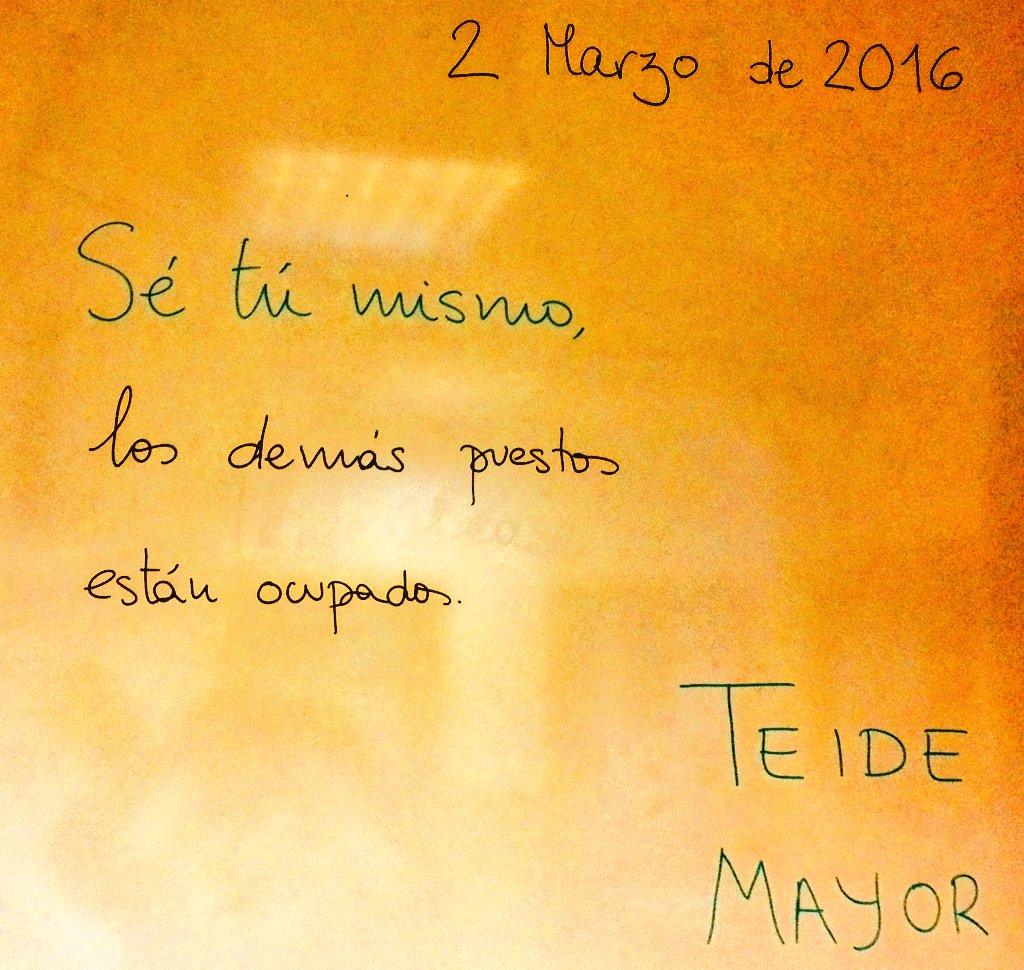 2 Marzo de 2016
Sé tú mismo,
los demás puestos
están ocupados.
TEIDE
MAYOR